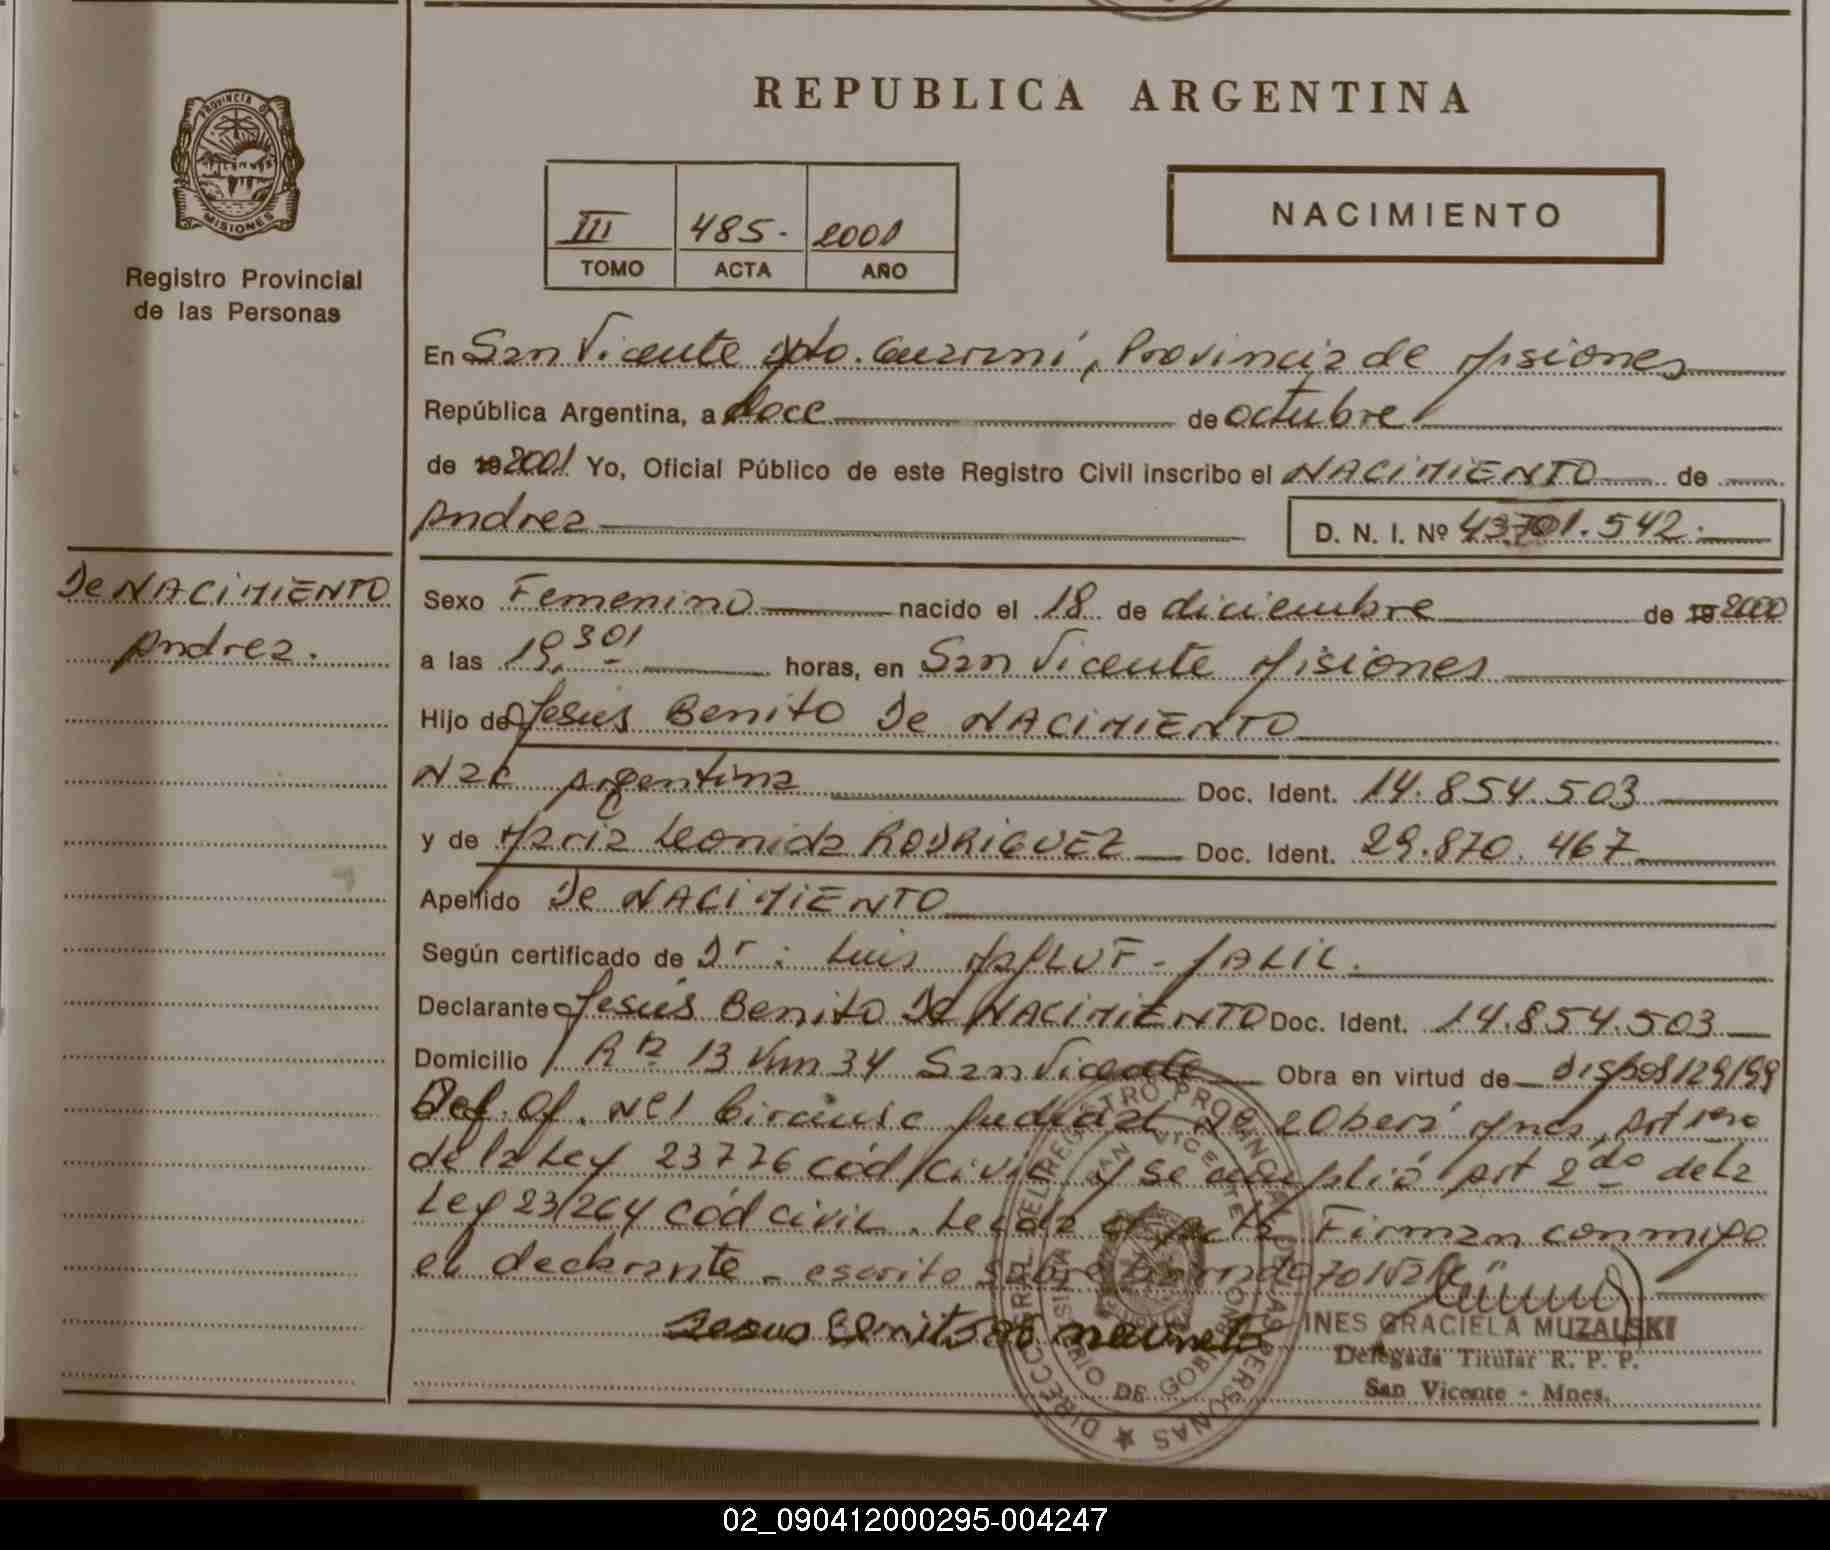 REPUBLICA ARGENTINA
PROVINCIA DE
MISIONES
Registro Provincial
de las Personas
III 485- 2001
TOMO ACTA AÑO
NACIMIENTO
En San Vicente Dpto. Guaraní, Provincia de Misiones
República Argentina, a doce de octubre
de 19 2001 Yo, Oficial Público de este Registro Civil inscribo el NACIMIENTO de
Andrea
D. N. I. Nº 43.701.542.
De NACIMIENTO
Andrea.
Sexo Femenino nacido el 18 de diciembre de 19 2000
a las 19,30 horas, en San Vicente Misiones
Hijo de Jesús Benito De NACIMIENTO
Nac Argentina Doc. Ident. 14.854.503
y de Maria Leonida RODRIGUEZ Doc. Ident. 29.870.467
Apellido De NACIMIENTO
Según certificado de Dr: Luis MALLUF - JALIL.
Declarante Jesús Benito De NACIMIENTO Doc. Ident. 14.854.503
Domicilio Rn 13 Km 34 San Vicente Obra en virtud de dispos 129/99
Def. Of. Nº1 Circunsc Judicial de Oberá Mnes, Art 1ero
de la Ley 23776 cód civil y se cumplió Art 2do de la
Ley 23264 cód civil. Leida el acta Firman conmigo
el declarante - escrito sobre borrado 701 vale"
Jesus Benito de
DIRECC GRAL DEL REGISTRO PROVINCIAL DE LAS PERSONAS
SAN VICENTE
INES GRACIELA MUZALSKI
Delegada Titular R. P. P.
San Vicente - Mnes.
02_090412000295-004247